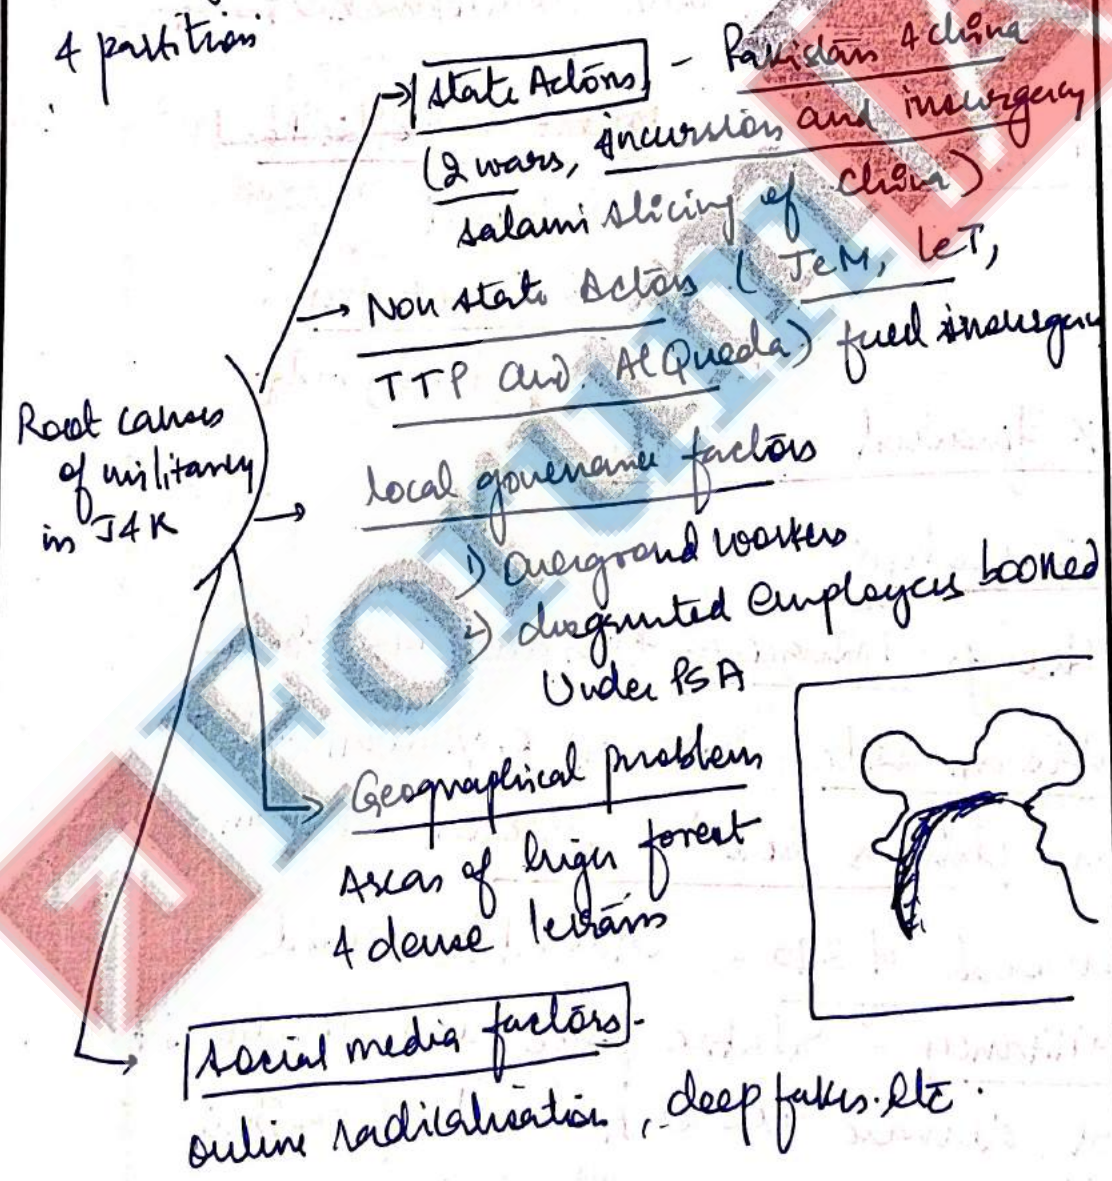 & partition
State Actors - Pakistan & China
(2 wars, incursion and insurgency
salami slicing of China)
Non state Actors (JeM, LeT,
TTP and Al Queda) fuel insurgen
Root causes
of militancy
in J&K
local governance factors
1) overground workers
2) disgrunted employees booked
Under PSA
Geographical problem
Areas of higer forest
& dense terrains
Social media factors -
online radicalisation, deep fakes. etc.
Forum